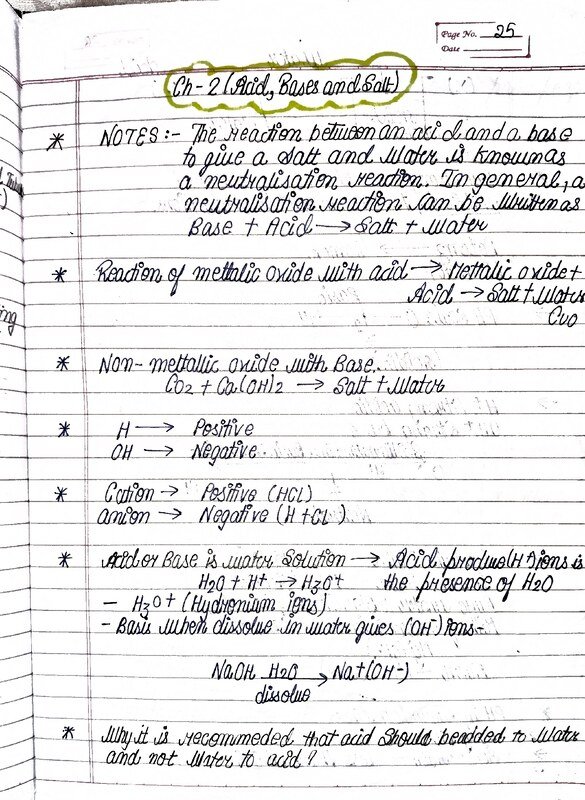 Page No. 25
Date
Ch-2 (Acid, Bases and Salt)
* NOTES:- The reaction between an acid and a base
to give a salt and water is known as
a neutralisation reaction. In general, a
neutralisation reaction can be written as
Base + Acid → Salt + Water
* Reaction of mettalic oxide with acid → Mettalic oxide +
Acid → Salt + Water
CuO
* Non-mettallic oxide with Base.
CO2 + Ca(OH)2 → Salt + Water
* H → Positive
OH → Negative
* Cation → Positive (HCL)
anion → Negative (H+CL-)
* Acid or Base is water Solution → Acid produce (H+) ions is
H2O + H+ → H3O+ the presence of H2O
- H3O+ (Hydronium ions)
- Basis when dissolve in water gives (OH-) ions-
NaOH H2O → Na+(OH-)
dissolve
* Why it is recommeded that acid should beadded to water
and not water to acid?